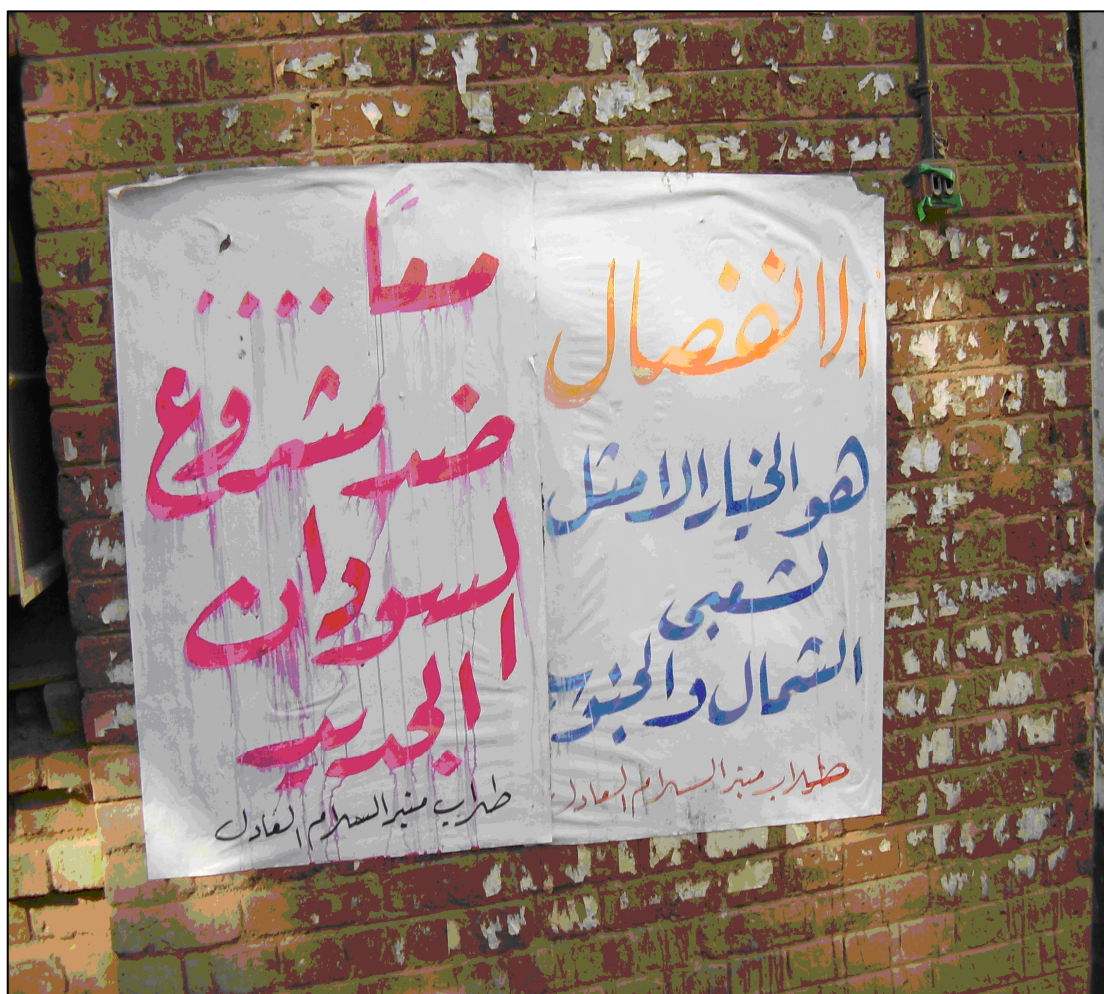 الانفصال
هو الخيار الامثل
لشعبى
الشمال والجنوب
طلاب منبر السلام العادل
معاً ....
ضد مشروع
السودان
الجديد
طلاب منبر السلام العادل